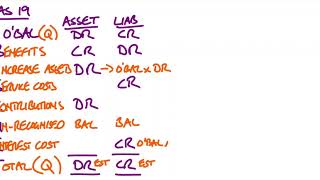 AS 19
ASSET LIAB
O'BAL (Q) DR CR
BENEFITS CR DR
INCREASE ASSETS DR → O'BAL x DR
SERVICE COSTS CR
CONTRIBUTIONS DR
N-RECOGNISED BAL BAL
INTEREST COST CR O'BAL
TOTAL (Q) DR EST CR EST